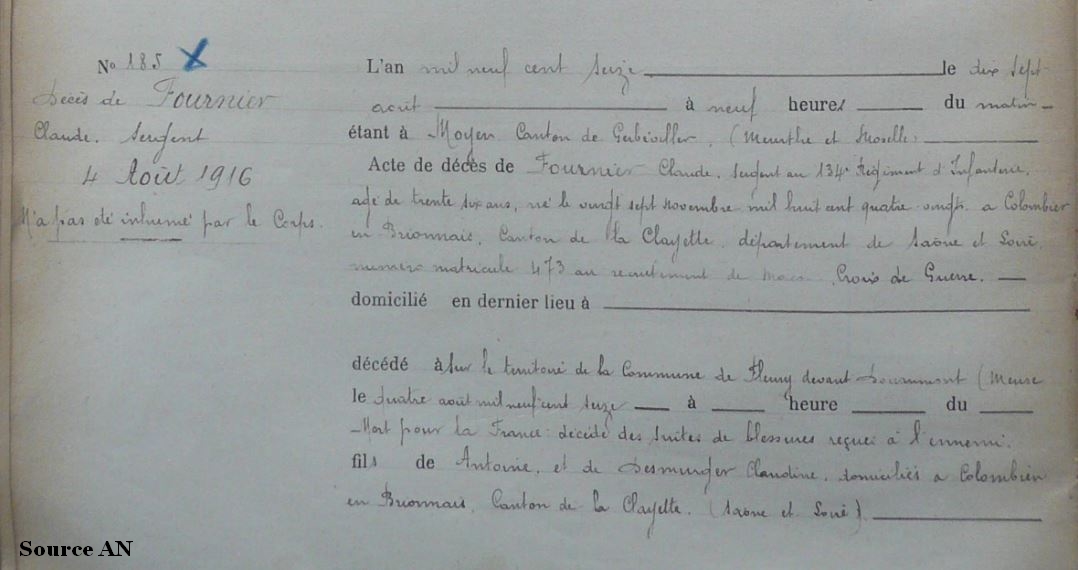 No 185 X
Décès de Fournier
Claude. Sergent
4 Août 1916
N'a pas été inhumé par le Corps.
L'an mil neuf cent seize le dix sept
août à neuf heures du matin
étant à Moyen Canton de Gerbéviller. (Meurthe et Moselle)
Acte de décès de Fournier Claude, Sergent au 134e Régiment d'Infanterie,
agé de trente six ans, né le vingt sept novembre mil huit cent quatre-vingt, a Colombier
en Brionnais, Canton de la Clayette, département de Saône et Loire,
numéro matricule 473 au recrutement de Macon. Croix de Guerre.
domicilié en dernier lieu à
décédé à sur le territoire de la Commune de Fleury devant Douaumont (Meuse
le quatre août mil neuf cent seize à heure du
Mort pour la France: décédé des suites de blessures reçues à l'ennemi.
fils de Antoine, et de Desmurger Claudine, domiciliés a Colombier
en Brionnais, Canton de la Clayette. (Saône et Loire)
Source AN